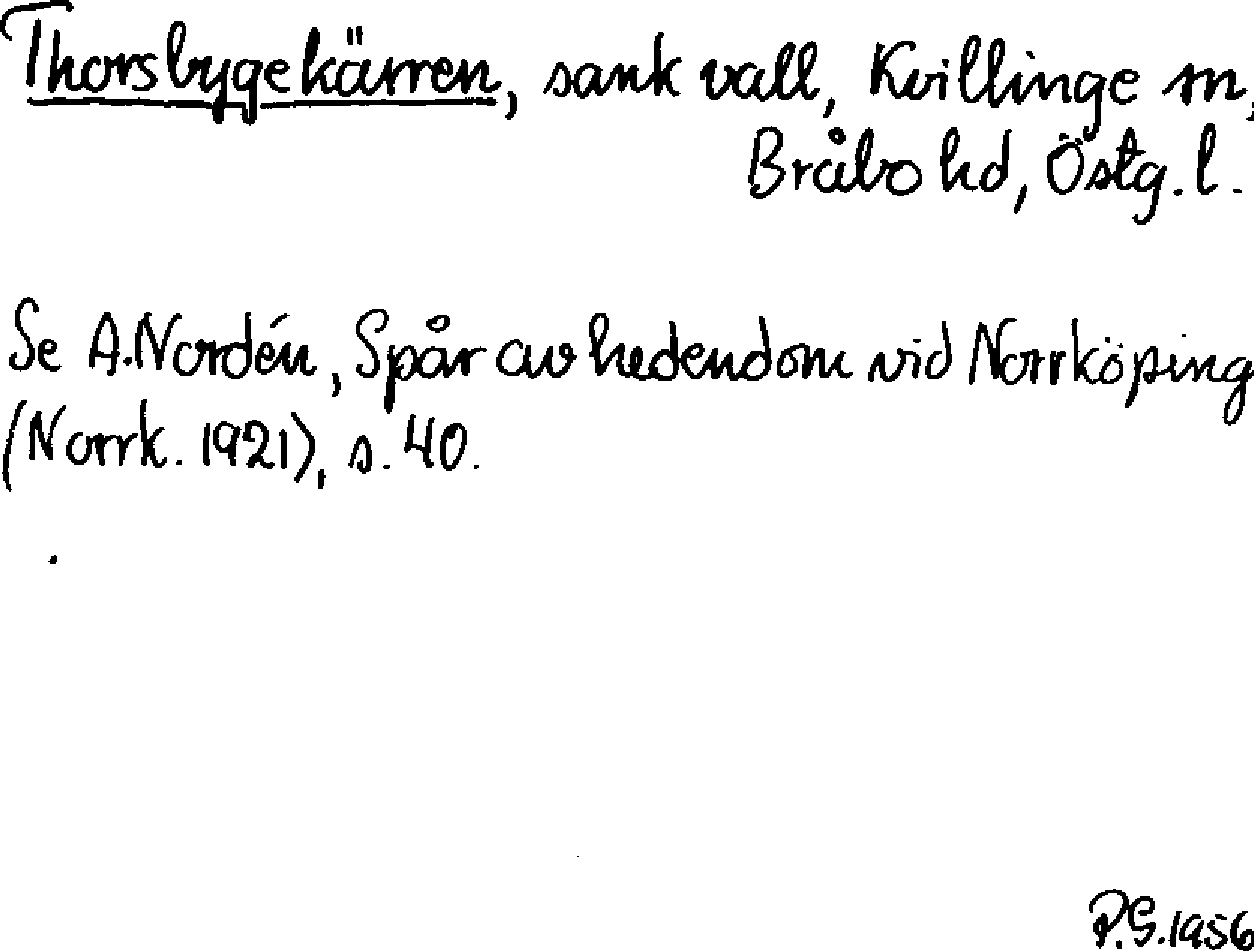 Thorsbygekärren, sank vall, Kvillinge sn,
Bråbo hd, Östg. l.
Se A. Nordén, Spår av hedendom vid Norrköping
(Norrk. 1921), s. 40.
P.G. 1956